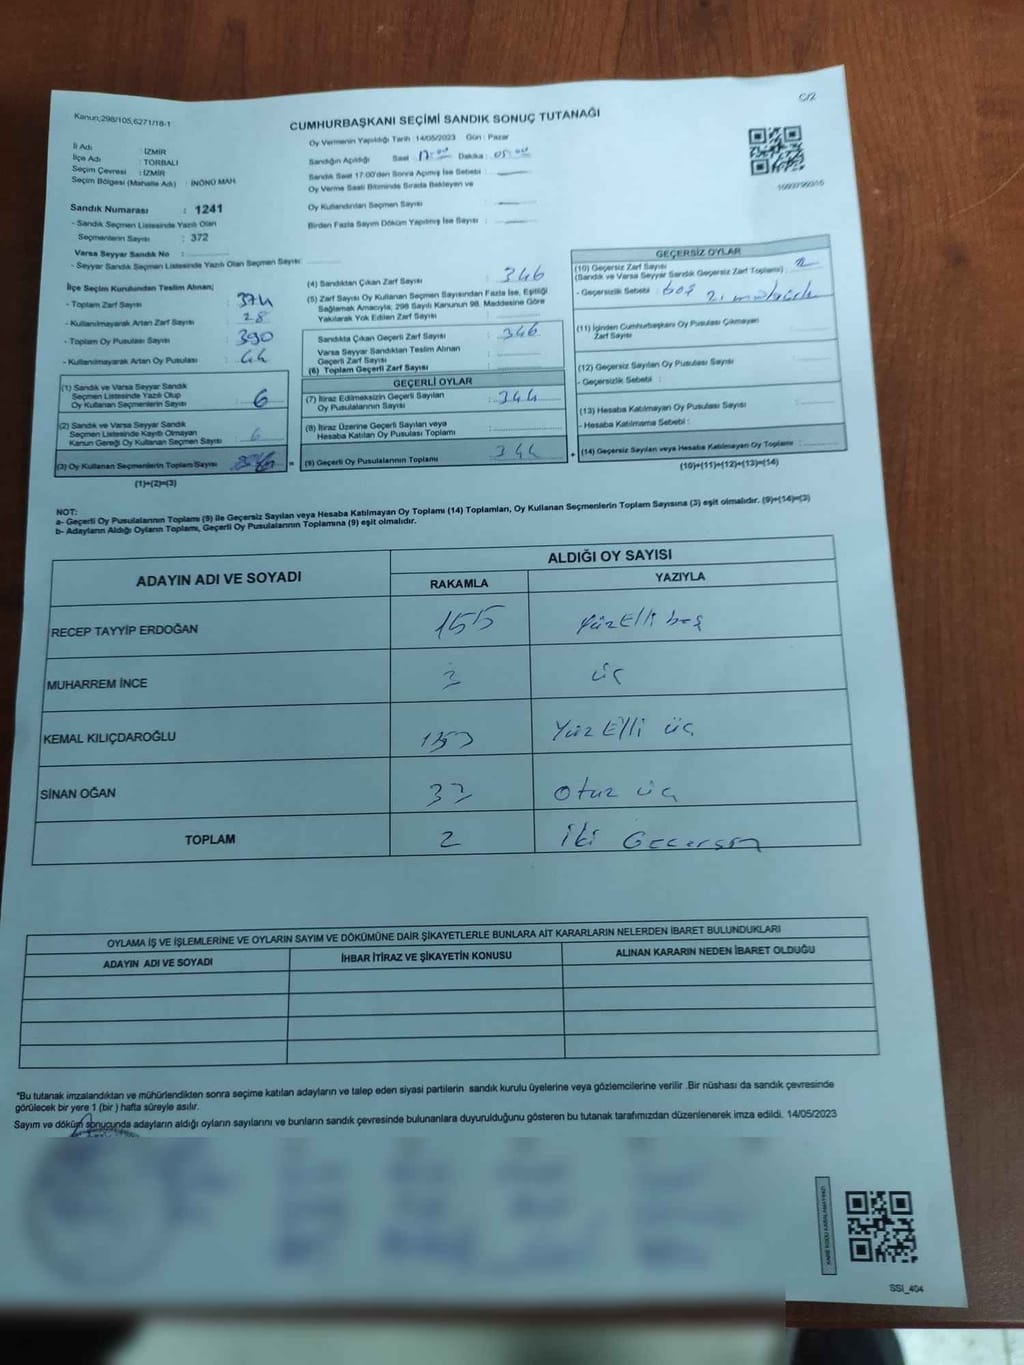 C/2
Kanun;298/105,6271/18-1
CUMHURBAŞKANI SEÇİMİ SANDIK SONUÇ TUTANAĞI
İl Adı : İZMİR
İlçe Adı : TORBALI
Seçim Çevresi : İZMİR
Seçim Bölgesi (Mahalle Adı) : İNÖNÜ MAH.
Sandık Numarası : 1241
- Sandık Seçmen Listesinde Yazılı Olan
Seçmenlerin Sayısı : 372
Varsa Seyyar Sandık No :
- Seyyar Sandık Seçmen Listesinde Yazılı Olan Seçmen Sayısı:
Oy Vermenin Yapıldığı Tarih : 14/05/2023 Gün : Pazar
Sandığın Açıldığı Saat 17:00 Dakika :
Sandık Saat 17:00'den Sonra Açılmış İse Sebebi :
Oy Verme Saati Bitiminde Sırada Bekleyen ve
Oy Kullandırılan Seçmen Sayısı :
Birden Fazla Sayım Döküm Yapılmış İse Sayısı :
İlçe Seçim Kurulundan Teslim Alınan;
- Toplam Zarf Sayısı : 374
- Kullanılmayarak Artan Zarf Sayısı : 28
- Toplam Oy Pusulası Sayısı : 390
- Kullanılmayarak Artan Oy Pusulası : 44
(1) Sandık ve Varsa Seyyar Sandık
Seçmen Listesinde Yazılı Olup
Oy Kullanan Seçmenlerin Sayısı : 6
(2) Sandık ve Varsa Seyyar Sandık
Seçmen Listesinde Kayıtlı Olmayan
Kanun Gereği Oy Kullanan Seçmen Sayısı : 6
(3) Oy Kullanan Seçmenlerin Toplam Sayısı
(1)+(2)=(3)
(4) Sandıktan Çıkan Zarf Sayısı : 346
(5) Zarf Sayısı Oy Kullanan Seçmen Sayısından Fazla İse, Eşitliği
Sağlamak Amacıyla; 298 Sayılı Kanunun 98. Maddesine Göre
Yakılarak Yok Edilen Zarf Sayısı :
Sandıkta Çıkan Geçerli Zarf Sayısı : 346
Varsa Seyyar Sandıktan Teslim Alınan
Geçerli Zarf Sayısı :
(6) Toplam Geçerli Zarf Sayısı :
GEÇERLİ OYLAR
(7) İtiraz Edilmeksizin Geçerli Sayılan
Oy Pusulalarının Sayısı : 344
(8) İtiraz Üzerine Geçerli Sayılan veya
Hesaba Katılan Oy Pusulası Toplamı :
(9) Geçerli Oy Pusulalarının Toplamı 344
GEÇERSİZ OYLAR
(10) Geçersiz Zarf Sayısı
(Sandık ve Varsa Seyyar Sandık Geçersiz Zarf Toplamı) : 2
- Geçersizlik Sebebi : boş
(11) İçinden Cumhurbaşkanı Oy Pusulası Çıkmayan
Zarf Sayısı :
(12) Geçersiz Sayılan Oy Pusulası Sayısı :
- Geçersizlik Sebebi :
(13) Hesaba Katılmayan Oy Pusulası Sayısı :
- Hesaba Katılmama Sebebi :
(14) Geçersiz Sayılan veya Hesaba Katılmayan Oy Toplamı :
(10)+(11)+(12)+(13)=(14)
NOT:
a- Geçerli Oy Pusulalarının Toplamı (9) ile Geçersiz Sayılan veya Hesaba Katılmayan Oy Toplamı (14) Toplamları, Oy Kullanan Seçmenlerin Toplam Sayısına (3) eşit olmalıdır. (9)+(14)=(3)
b- Adayların Aldığı Oyların Toplamı, Geçerli Oy Pusulalarının Toplamına (9) eşit olmalıdır.
ADAYIN ADI VE SOYADI
ALDIĞI OY SAYISI
RAKAMLA YAZIYLA
RECEP TAYYİP ERDOĞAN 155 Yüz Elli beş
MUHARREM İNCE 3 üç
KEMAL KILIÇDAROĞLU 153 Yüz Elli üç
SİNAN OĞAN 33 Otuz üç
TOPLAM 2 iki Geçersiz
OYLAMA İŞ VE İŞLEMLERİNE VE OYLARIN SAYIM VE DÖKÜMÜNE DAİR ŞİKAYETLERLE BUNLARA AİT KARARLARIN NELERDEN İBARET BULUNDUKLARI
ADAYIN ADI VE SOYADI İHBAR İTİRAZ VE ŞİKAYETİN KONUSU ALINAN KARARIN NEDEN İBARET OLDUĞU
*Bu tutanak imzalandıktan ve mühürlendikten sonra seçime katılan adayların ve talep eden siyasi partilerin sandık kurulu üyelerine veya gözlemcilerine verilir .Bir nüshası da sandık çevresinde
görülecek bir yere 1 (bir ) hafta süreyle asılır.
Sayım ve döküm sonucunda adayların aldığı oyların sayılarını ve bunların sandık çevresinde bulunanlara duyurulduğunu gösteren bu tutanak tarafımızdan düzenlenerek imza edildi. 14/05/2023
KARE KODU KARALAMAYINIZ!
SSI_404